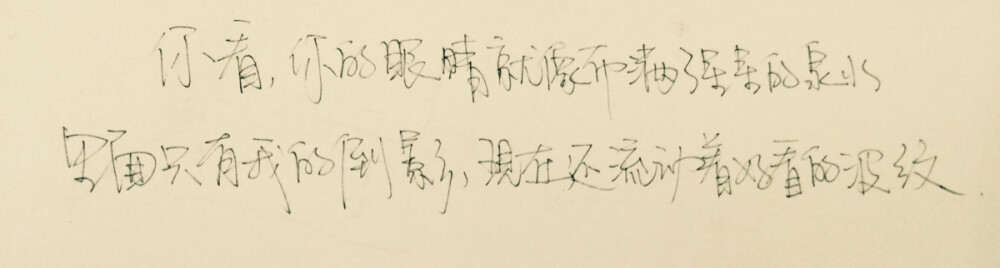 你看,你的眼睛就像两湾深春的泉水
里面只有我的倒影,现在还流动着好看的波纹.